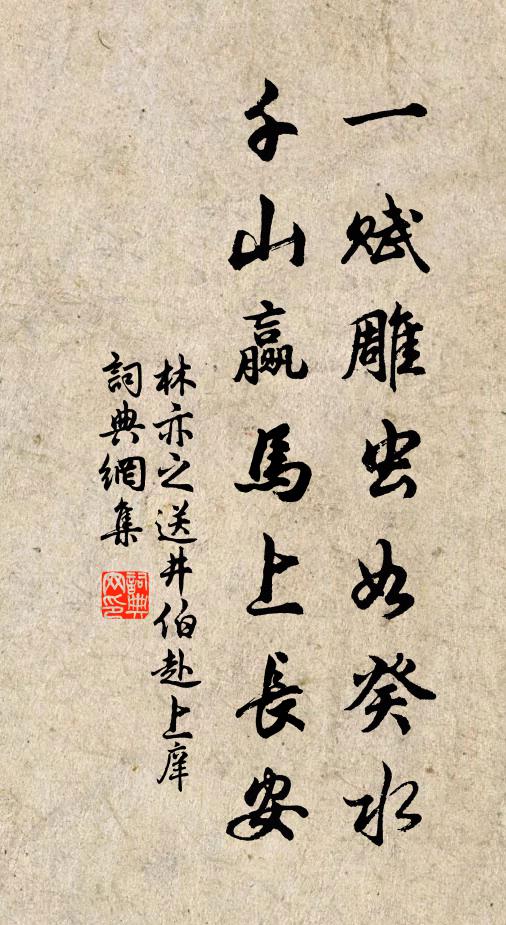 一賦雕虫如癸水
千山羸馬上長安
林亦之送井伯赴上庠
詞典網集
詞典网印